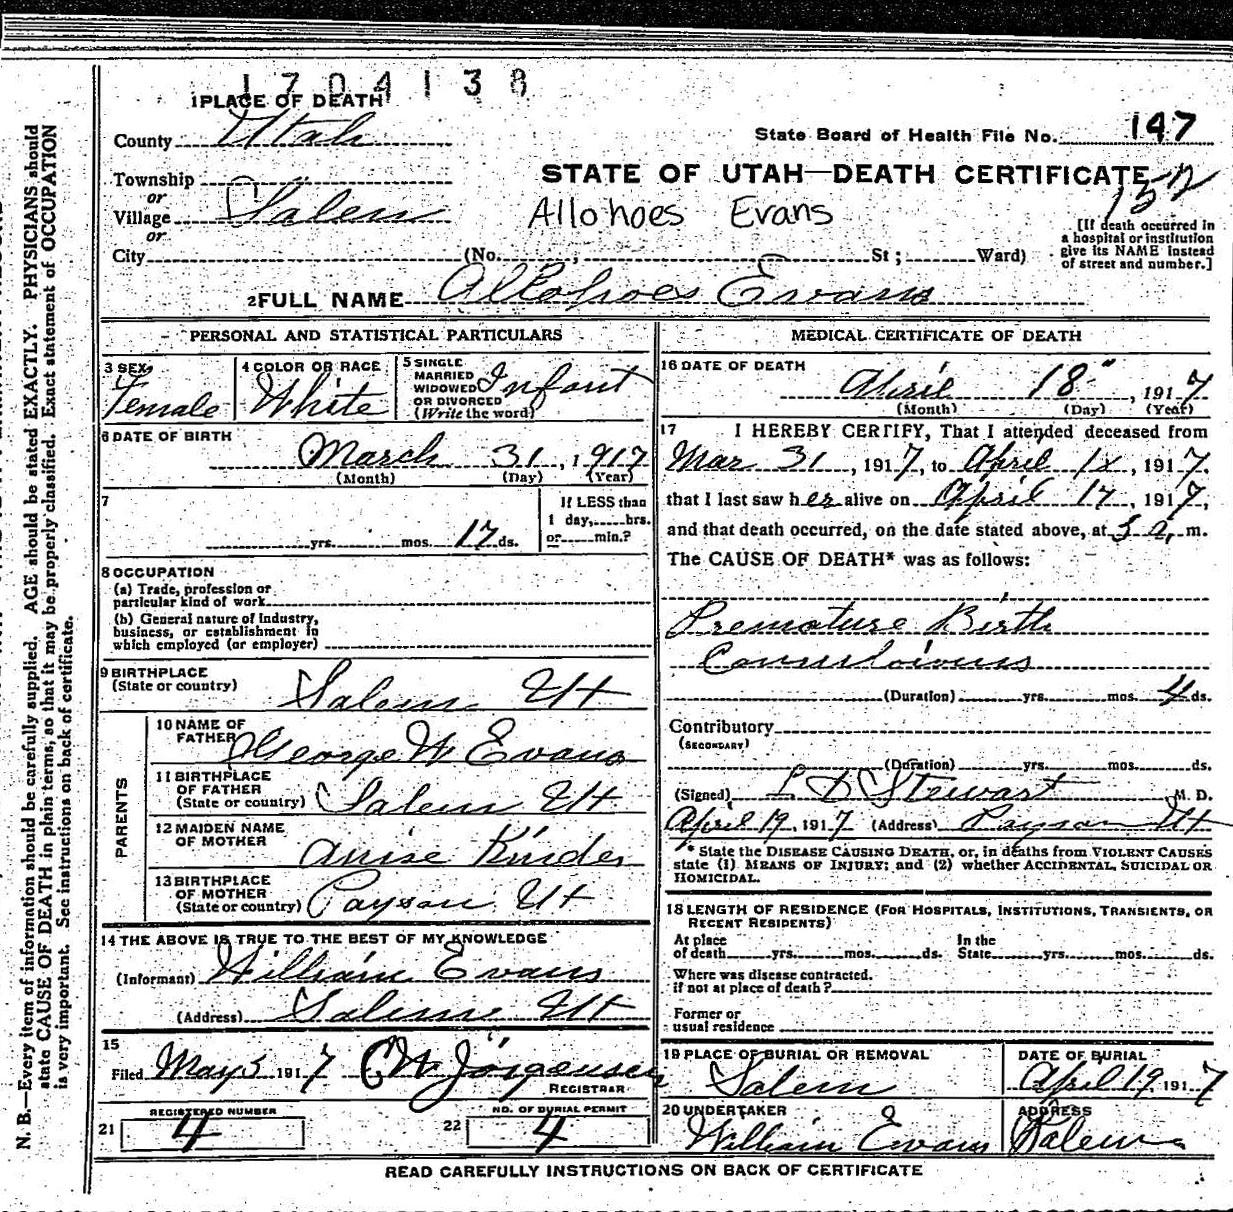 1704138
1 PLACE OF DEATH
County Utah
State Board of Health File No. 147
Township
STATE OF UTAH—DEATH CERTIFICATE
152
or
Village Salem
Allohoes Evans
or
City (No. ; St ; Ward)
[If death occurred in
a hospital or institution
give its NAME instead
of street and number.]
2 FULL NAME Allohoes Evans
PERSONAL AND STATISTICAL PARTICULARS
3 SEX
Female
4 COLOR OR RACE
White
5 SINGLE
MARRIED
WIDOWED
OR DIVORCED
(Write the word)
Infant
6 DATE OF BIRTH
March 31, 1917
(Month) (Day) (Year)
7
yrs. mos. 17 ds.
If LESS than
1 day, hrs.
or min.?
8 OCCUPATION
(a) Trade, profession or
particular kind of work
(b) General nature of industry,
business, or establishment in
which employed (or employer)
9 BIRTHPLACE
(State or country)
Salem Ut
PARENTS
10 NAME OF
FATHER
George W Evans
11 BIRTHPLACE
OF FATHER
(State or country)
Salem Ut
12 MAIDEN NAME
OF MOTHER
13 BIRTHPLACE
OF MOTHER
(State or country)
Payson Ut
14 THE ABOVE IS TRUE TO THE BEST OF MY KNOWLEDGE
(Informant) William Evans
(Address) Salem Ut
15
Filed May 5 1917 C W Jorgensen
REGISTRAR
REGISTERED NUMBER
21 4
NO. OF BURIAL PERMIT
22 4
MEDICAL CERTIFICATE OF DEATH
16 DATE OF DEATH
April 18", 1917
(Month) (Day) (Year)
17 I HEREBY CERTIFY, That I attended deceased from
Mar 31, 1917, to April 18, 1917.
that I last saw her alive on April 17, 1917,
and that death occurred, on the date stated above, at a, m.
The CAUSE OF DEATH* was as follows:
Premature Birth
(Duration) yrs. mos. 4 ds.
Contributory
(SECONDARY)
(Duration) yrs. mos. ds.
(Signed) L D Stewart M. D.
April 19, 1917 (Address) Payson Ut
* State the DISEASE CAUSING DEATH, or, in deaths from VIOLENT CAUSES
state (1) MEANS OF INJURY; and (2) whether ACCIDENTAL, SUICIDAL OR
HOMICIDAL.
18 LENGTH OF RESIDENCE (FOR HOSPITALS, INSTITUTIONS, TRANSIENTS, OR
RECENT RESIDENTS)
At place
of death yrs. mos. ds.
In the
State yrs. mos. ds.
Where was disease contracted.
if not at place of death?
Former or
usual residence
19 PLACE OF BURIAL OR REMOVAL
Salem
DATE OF BURIAL
April 19 1917
20 UNDERTAKER
William Evans
ADDRESS
Salem
READ CAREFULLY INSTRUCTIONS ON BACK OF CERTIFICATE
N. B.—Every item of information should be carefully supplied. AGE should be stated EXACTLY. PHYSICIANS should
state CAUSE OF DEATH in plain terms, so that it may be properly classified. Exact statement of OCCUPATION
is very important. See instructions on back of certificate.